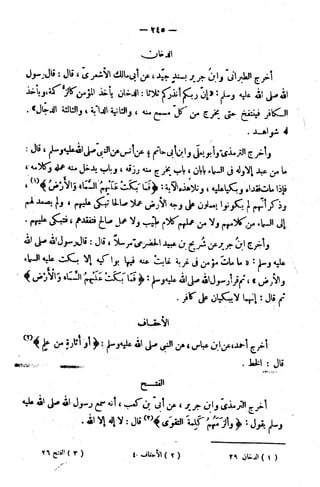 — ٢٤٥ —
الدخان
أخرج الطبرانىّ وابن جرير بسند جيّد، عن أبى مالك الأشعرىّ، قال: قال رسول
الله صلى الله عليه وسلم: «إنّ ربكم أنذركم ثلاثا: الدخان يأخذ المؤمن كالزكمة، ويأخذ
الكافر فينتفخ حتى يخرج من كلّ مسمع منه، والثانية الدابّة، والثالثة الدجّال».
له شواهد.
وأخرج الترمذىّ وأبو يعلى وابن أبى حاتم عن أنس عن النبى صلى الله عليه وسلم، قال:
ما من عبد إلا وله فى السماء بابان، باب يخرج منه رزقه، وباب يدخل منه عمله وكلامه،
فإذا مات فقداه وبكيا عليه، وتلا هذه الآية: ﴿فَمَا بَكَتْ عَلَيْهِمُ السَّمَاءُ وَالْأَرْضُ﴾(١)،
وذكر أنّهم لم يكونوا يعملون على وجه الأرض عملا صالحا تبكى عليهم، ولم يصعد لهم
إلى السماء من كلامهم ولا من عملهم كلام طيّب ولا عمل صالح فتفقدهم، فتبكى عليهم.
وأخرج ابن جرير عن شريح بن عبيد الحضرمىّ مرسلا، قال: قال رسول الله صلى الله
عليه وسلم: «ما مات مؤمن فى غربة غابت عنه فيها بواكيه إلا بكت عليه السماء
والأرض»، ثم قرأ رسول الله صلى الله عليه وسلم: ﴿فَمَا بَكَتْ عَلَيْهِمُ السَّمَاءُ وَالْأَرْضُ﴾
ثم قال: إنهما لا يبكيان على كافر.
الأحقاف
أخرج أحمد، عن ابن عباس، عن النبى صلى الله عليه وسلم: ﴿أو أثارة من علم﴾(٢)
قال: الخط.
الفتح
أخرج الترمذىّ وابن جرير، عن أبىّ بن كعب، أنه سمع رسول الله صلى الله عليه
وسلم يقول: ﴿وألزمهم كلمة التقوى﴾(٣) قال: لا إله إلا الله.
(١) الدخان ٢٩ (٢) الأحقاف ٤ (٣) الفتح ٢٦